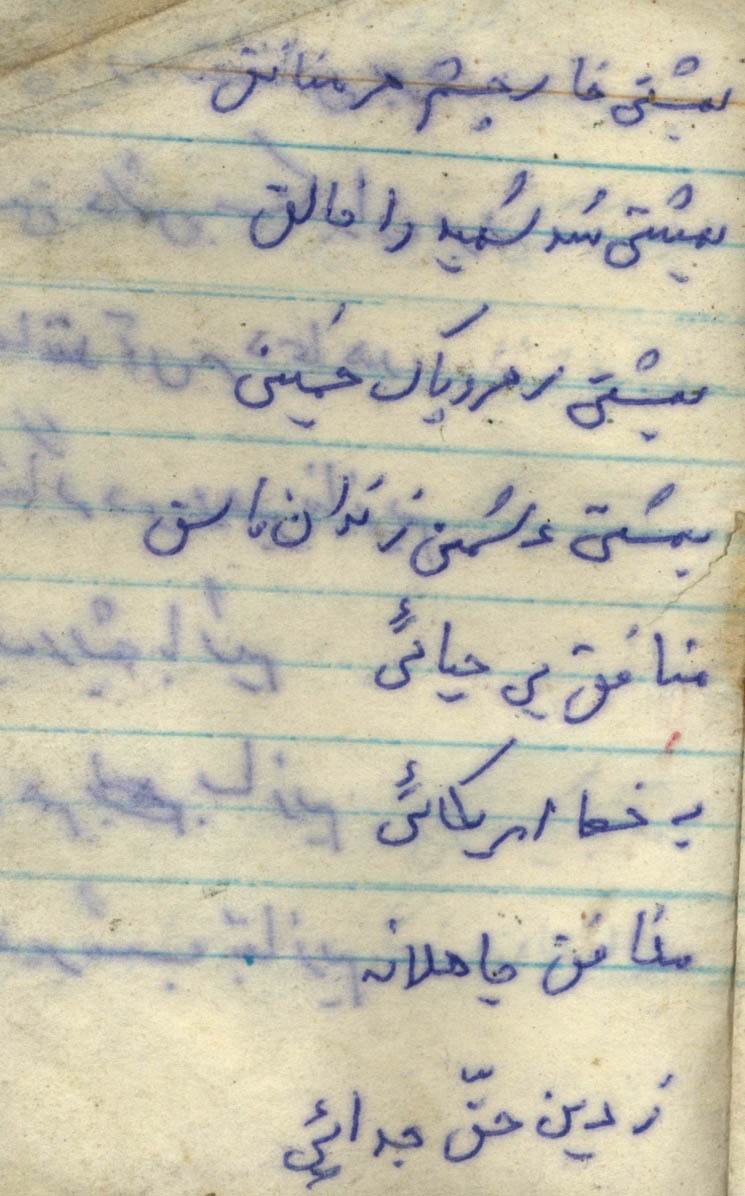 بهشتی خار چشم هر منافق
بهشتی شد شهید را خالق
بهشتی رهرو پاک خمینی
بهشتی دشمن رندان فاسق
منافق بی حیائی
به خط امریکائی
منافق جاهلانه
ز دین حقّ جدائی